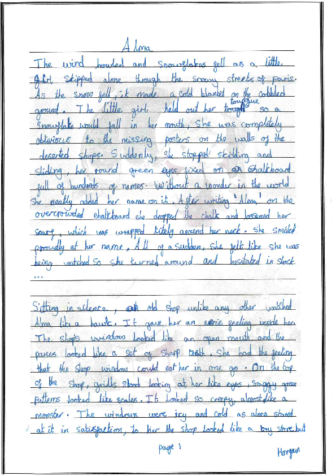 Alma
The wind howled and snowflakes fell as a little
girl skipped alone through the snowy streets of paris.
As the snow fell, it made a cold blanket on the cobbled
ground. The little girl held out her tongue so a
snowflake would fall in her mouth, She was completely
oblivious to the missing posters on the walls of the
deserted shops. Suddenly, she stopped skidding and
sliding, her round green eyes fixed on a chalkboard
full of hundreds of names. Without a wonder in the world
she neatly added her name on it. After writing 'Alma' on the
overcrowded chalkboard she dropped the chalk and loosened her
scarf, which was wrapped tightly around her neck. She smiled
proudly at her name. All of a sudden, she felt like she was
being watched so she turned around and hesitated in shock
...
Sitting in silence, an old shop unlike any other watched
Alma like a hawk. It gave her an eerie feeling inside her.
The shop's window looked like an open mouth and the
looked like a set of sharp teeth. She had the feeling
that the shop window could eat her in one go. On the top
of the shop, grills stood looking at her like eyes,
patterns looked like scales. It looked so creepy, almost like a
monster. The windows were icy and cold as alma stared
at it in satisfaction, to her the shop looked like a toy store but
page 1
Morgan